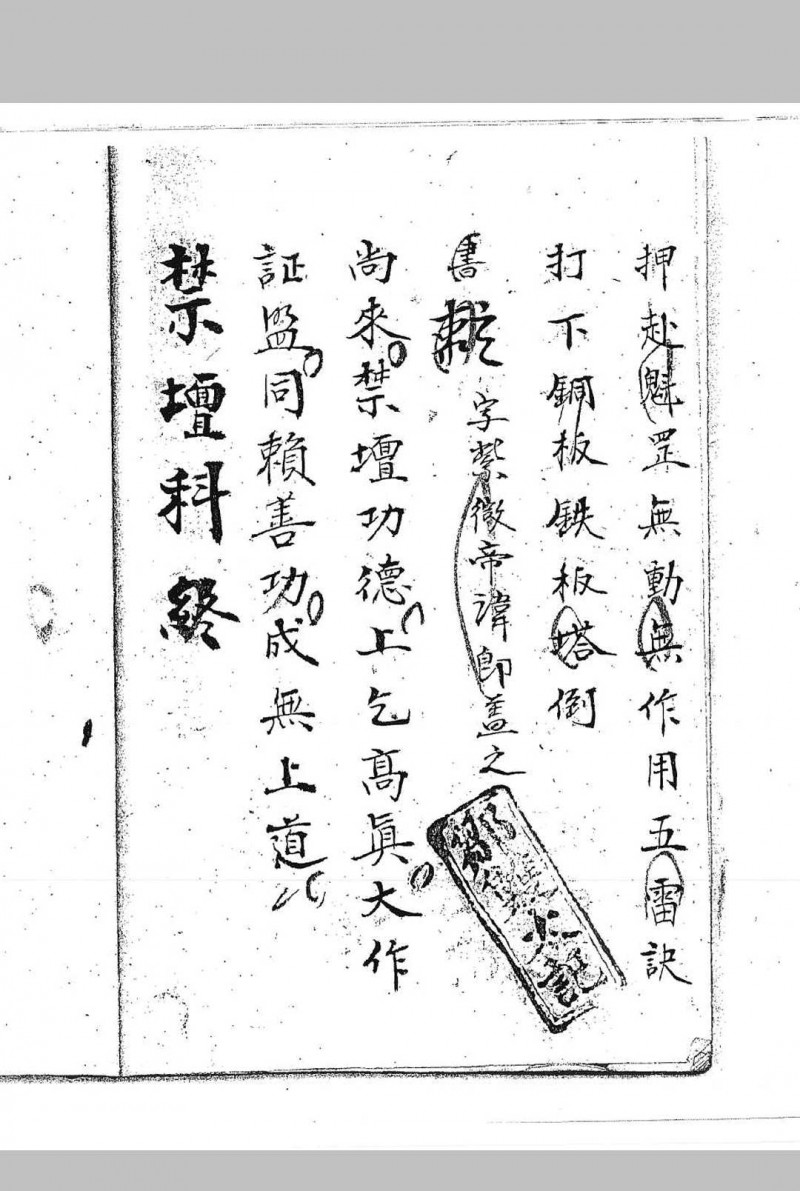 押赴魁罡無動無作用五雷訣
打下銅板鉄板塔倒
書 字紫微帝諱即蓋之
尚來禁壇功德上乞高眞大作
証盟同賴善功成無上道
禁壇科終